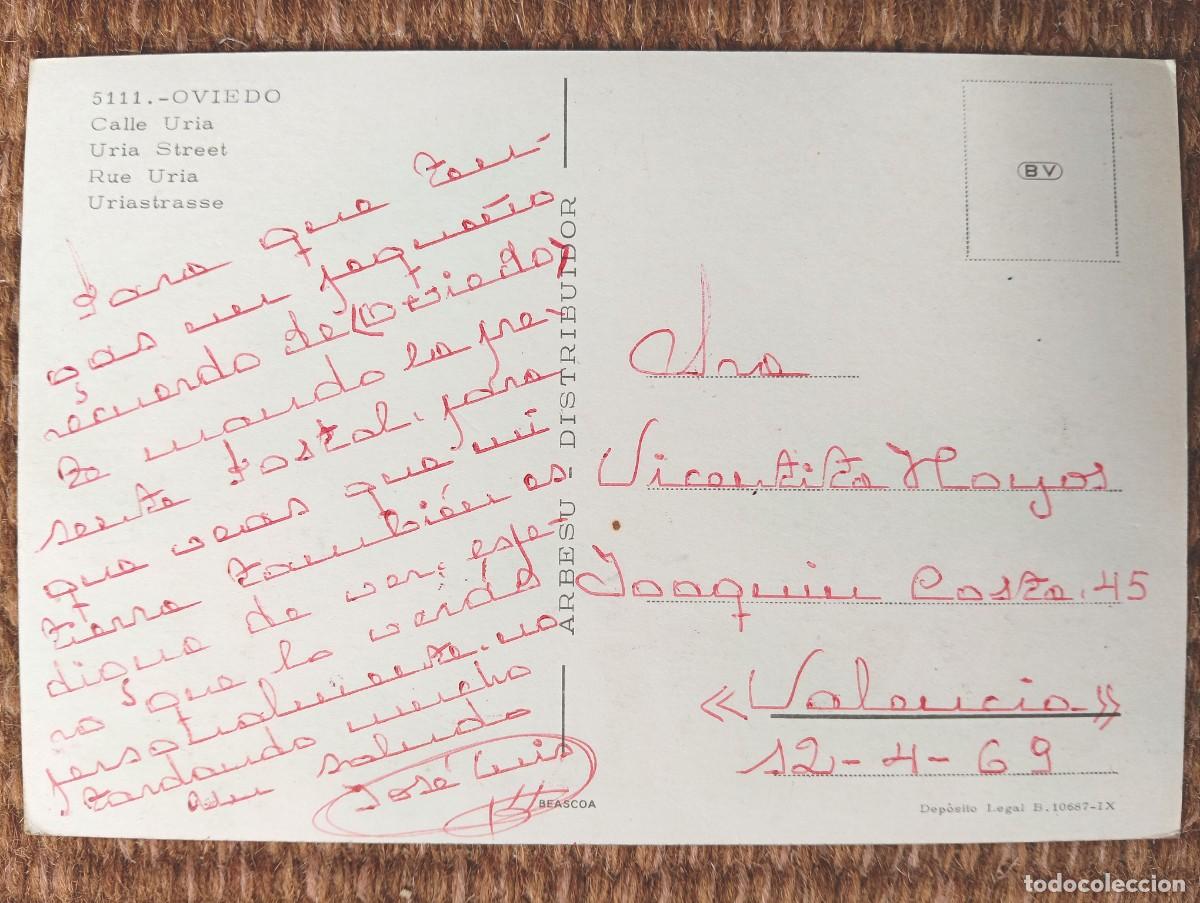 5111.-OVIEDO
Calle Uria
Uria Street
Rue Uria
Uriastrasse
Para que ten-
gas un pequeño
recuerdo de (Oviedo)
te mando la pre-
sente Postal, para
que veas que mi
tierra también es
digna de ver, espe-
ro que la verás
personalmente. no
tardando mucho
un saludo
José Luis
ARBESU - DISTRIBUIDOR
BEASCOA
BV
Sra
Vicentita Hoyos
Joaquin Costa. 45
«Valencia»
12-4-69
Depósito Legal B. 10687-IX
todocoleccion